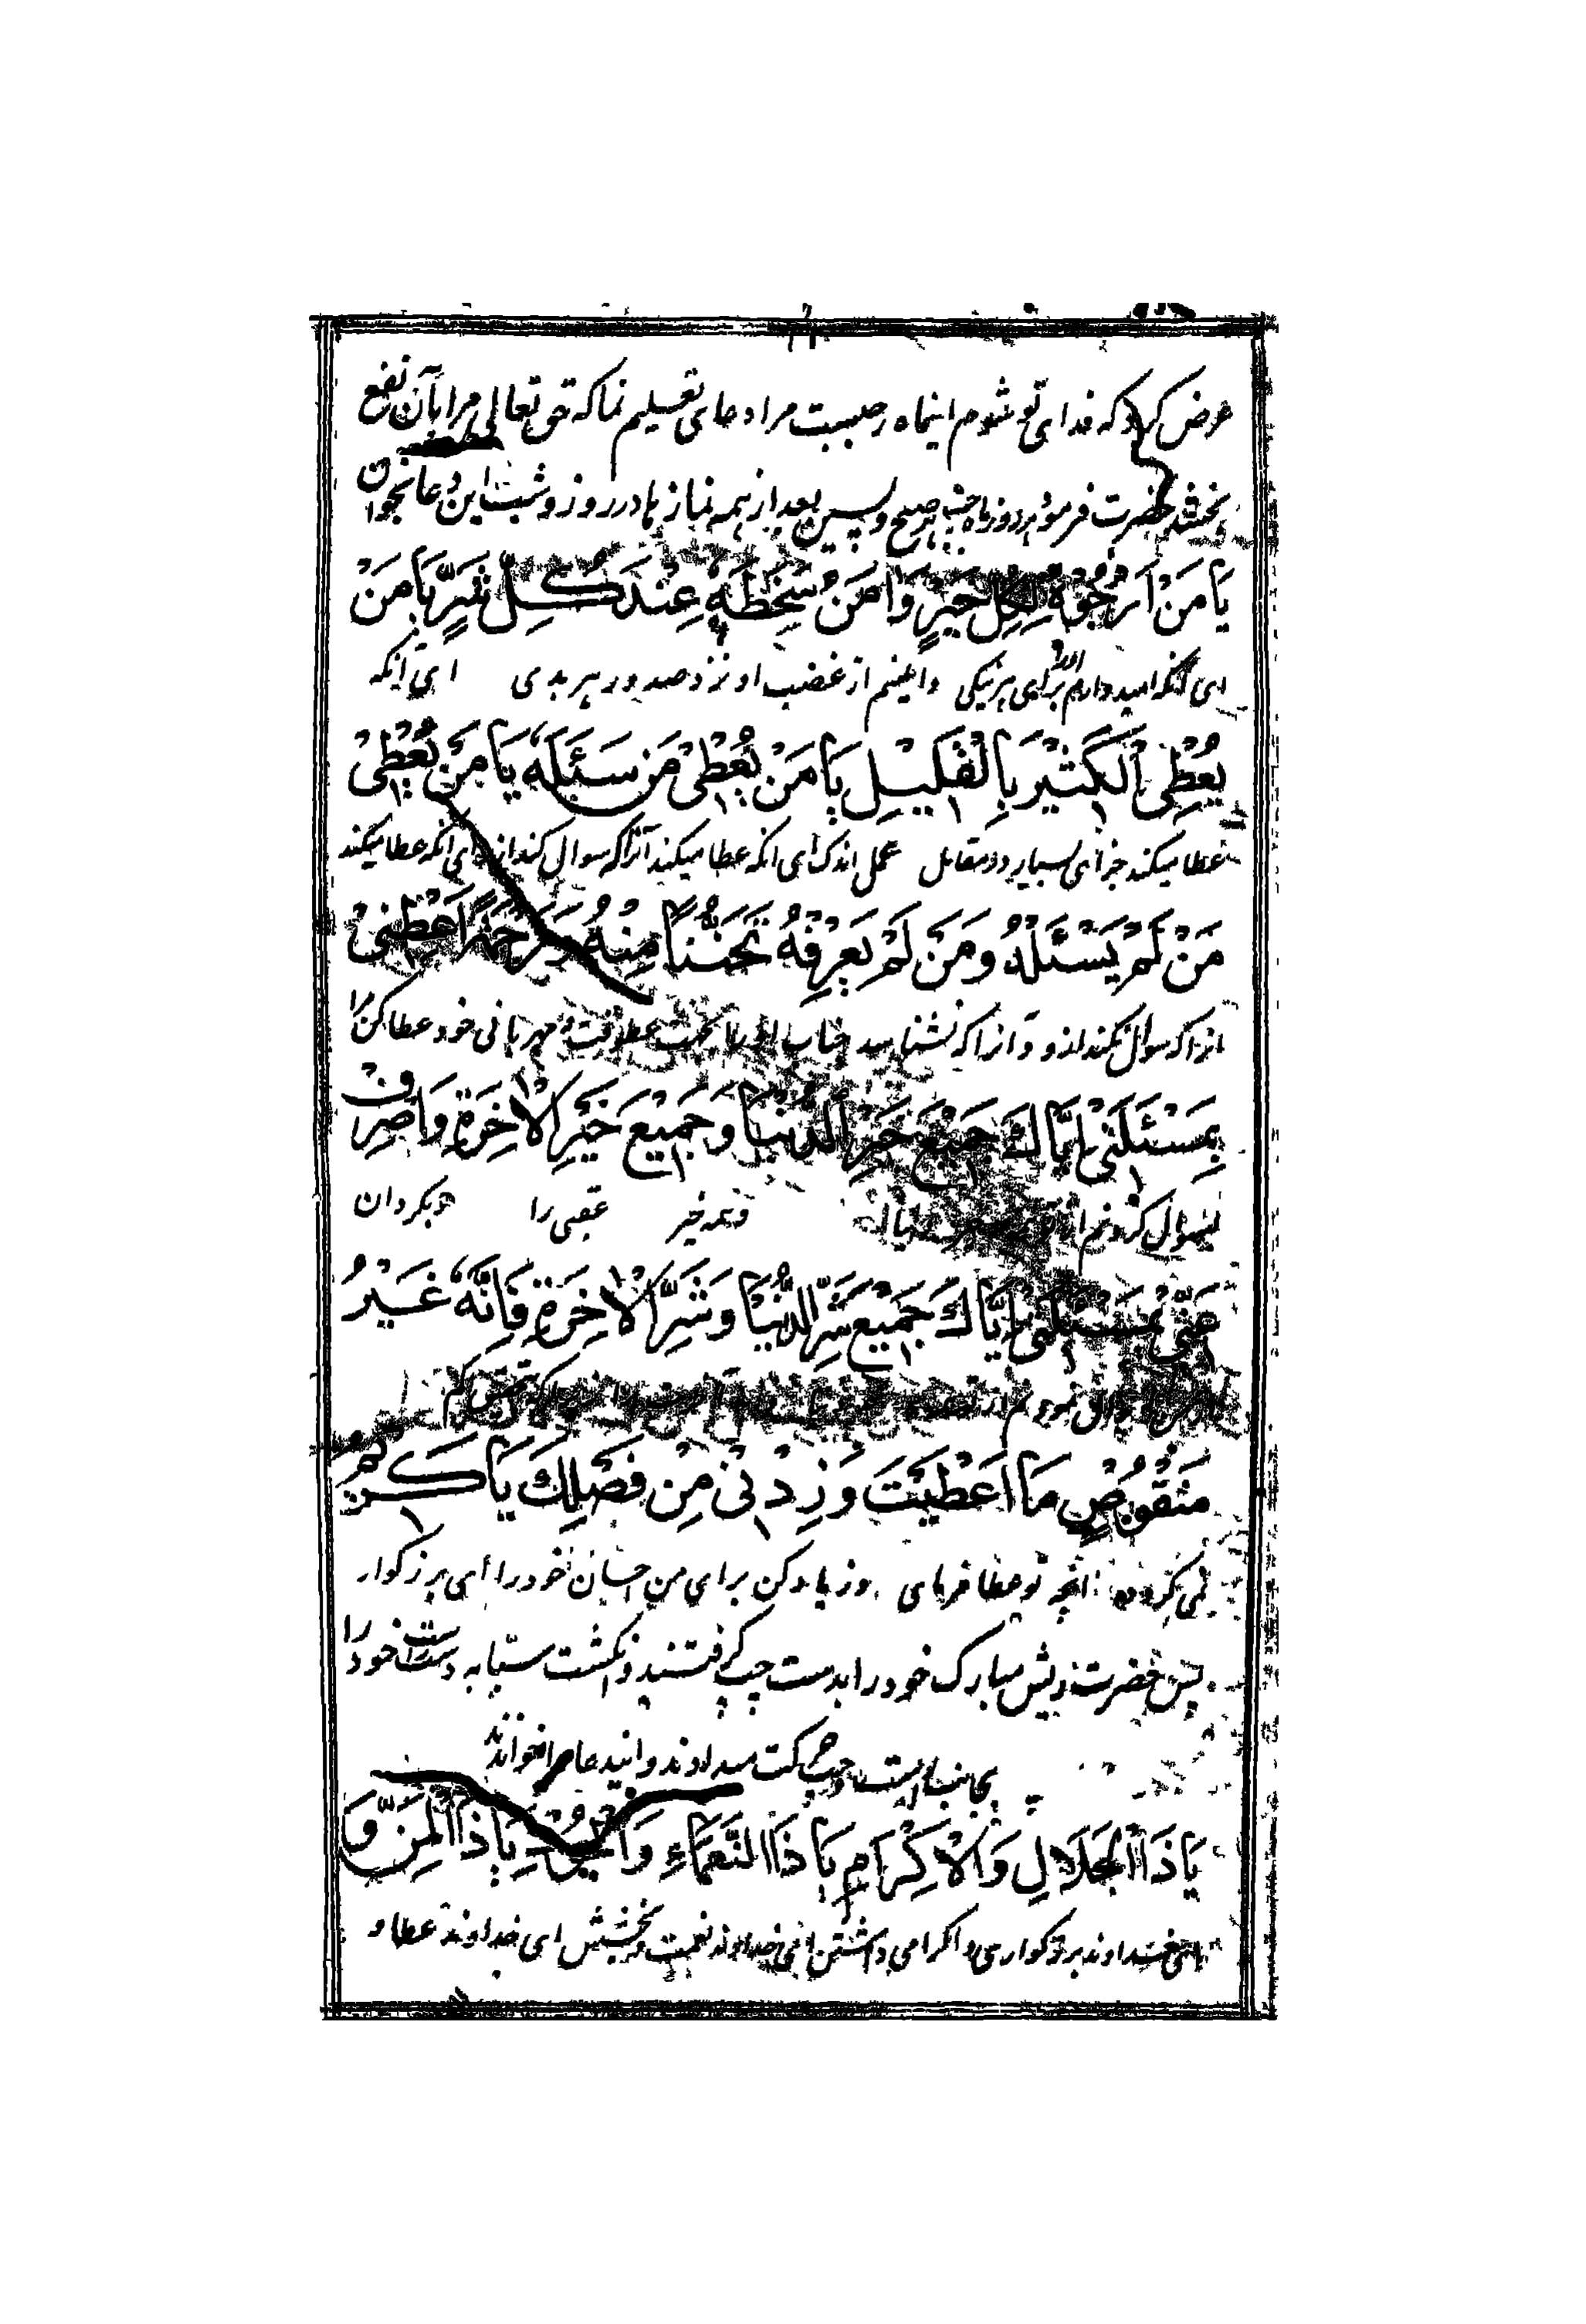 عرض کرد که فدای تو شوم اینماه رجبست مرا دعای تعلیم نما که حق تعالی مرا بآن نفع
بخشد حضرت فرمود هر روز ماه رجب هر صبح و پسین بعد از همه نماز ها در روز و شب این دعا بخوان
يَا مَنْ اَرْجُوْهُ لِكُلِّ خَيْرٍ وَ اٰمَنُ سَخَطَهٗ عِنْدَ كُلِّ شَرٍّ يَا مَنْ
ای آنکه امید دارم برای هر نیکی و ایمنم از غضب او نزد صدور هر بدی ای آنکه
يُعْطِى الْكَثِيْرَ بِالْقَلِيْلِ يَا مَنْ يُعْطِىْ مَنْ سَئَلَهٗ يَا مَنْ يُعْطِىْ
عطا میکند جزای بسیار در مقابل عمل اندک ای آنکه عطا میکند آنرا که سوال کند از و ای آنکه عطا میکند
مَنْ لَمْ يَسْئَلْهُ وَمَنْ لَمْ يَعْرِفْهُ تَحَنُّنًا مِنْهُ وَ رَحْمَةً اَعْطِنِىْ
انرا که سوال نکند از و و آنرا که نشناسد مهربانی خود عطا کن مرا
بِمَسْئَلَتِىْ اِيَّاكَ جَمِيْعَ خَيْرِ الدُّنْيَا وَ جَمِيْعَ خَيْرِ الْاٰخِرَةِ وَاصْرِفْ
بسوال کردنم و همه خیر عقبی را و بگردان
عَنِّىْ بِمَسْئَلَتِىْ اِيَّاكَ جَمِيْعَ شَرِّ الدُّنْيَا وَ شَرِّ الْاٰخِرَةِ فَاِنَّهٗ غَيْرُ
مَنْقُوْصٍ مَا اَعْطَيْتَ وَ زِدْنِىْ مِنْ فَضْلِكَ يَا كَرِيْمُ
آنچه تو عطا فرمای و زیاده کن برای من احسان خود را ای بزرگوار
پس حضرت ریش مبارک خود را بدست چپ گرفتند و انگشت سبّابه دست راست خود را
بجانب راست و چپ حرکت میدادند و ایندعا را میخواندند
يَا ذَا الْجَلَالِ وَالْاِكْرَامِ يَا ذَا النَّعْمَآءِ وَالْجُوْدِ يَا ذَا الْمَنِّ وَ
ای خداوند بزرگواری و اکرامی داشتن ای خداوند نعمت و بخشش ای خداوند عطا و